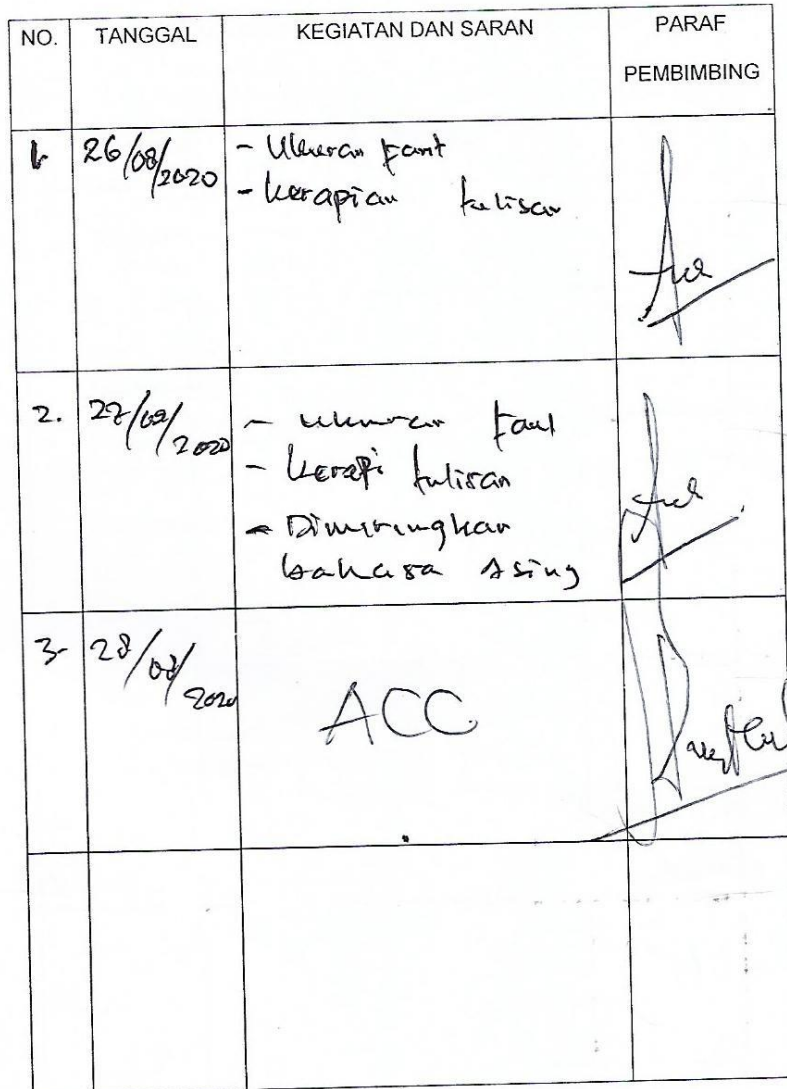 NO. TANGGAL KEGIATAN DAN SARAN PARAF
PEMBIMBING
1. 26/08/2020 - Ukuran font
- kerapian tulisan
2. 27/08/2020 - ukuran font
- kerapi tulisan
- Dimiringkan
bahasa Asing
3. 28/08/2020 ACC